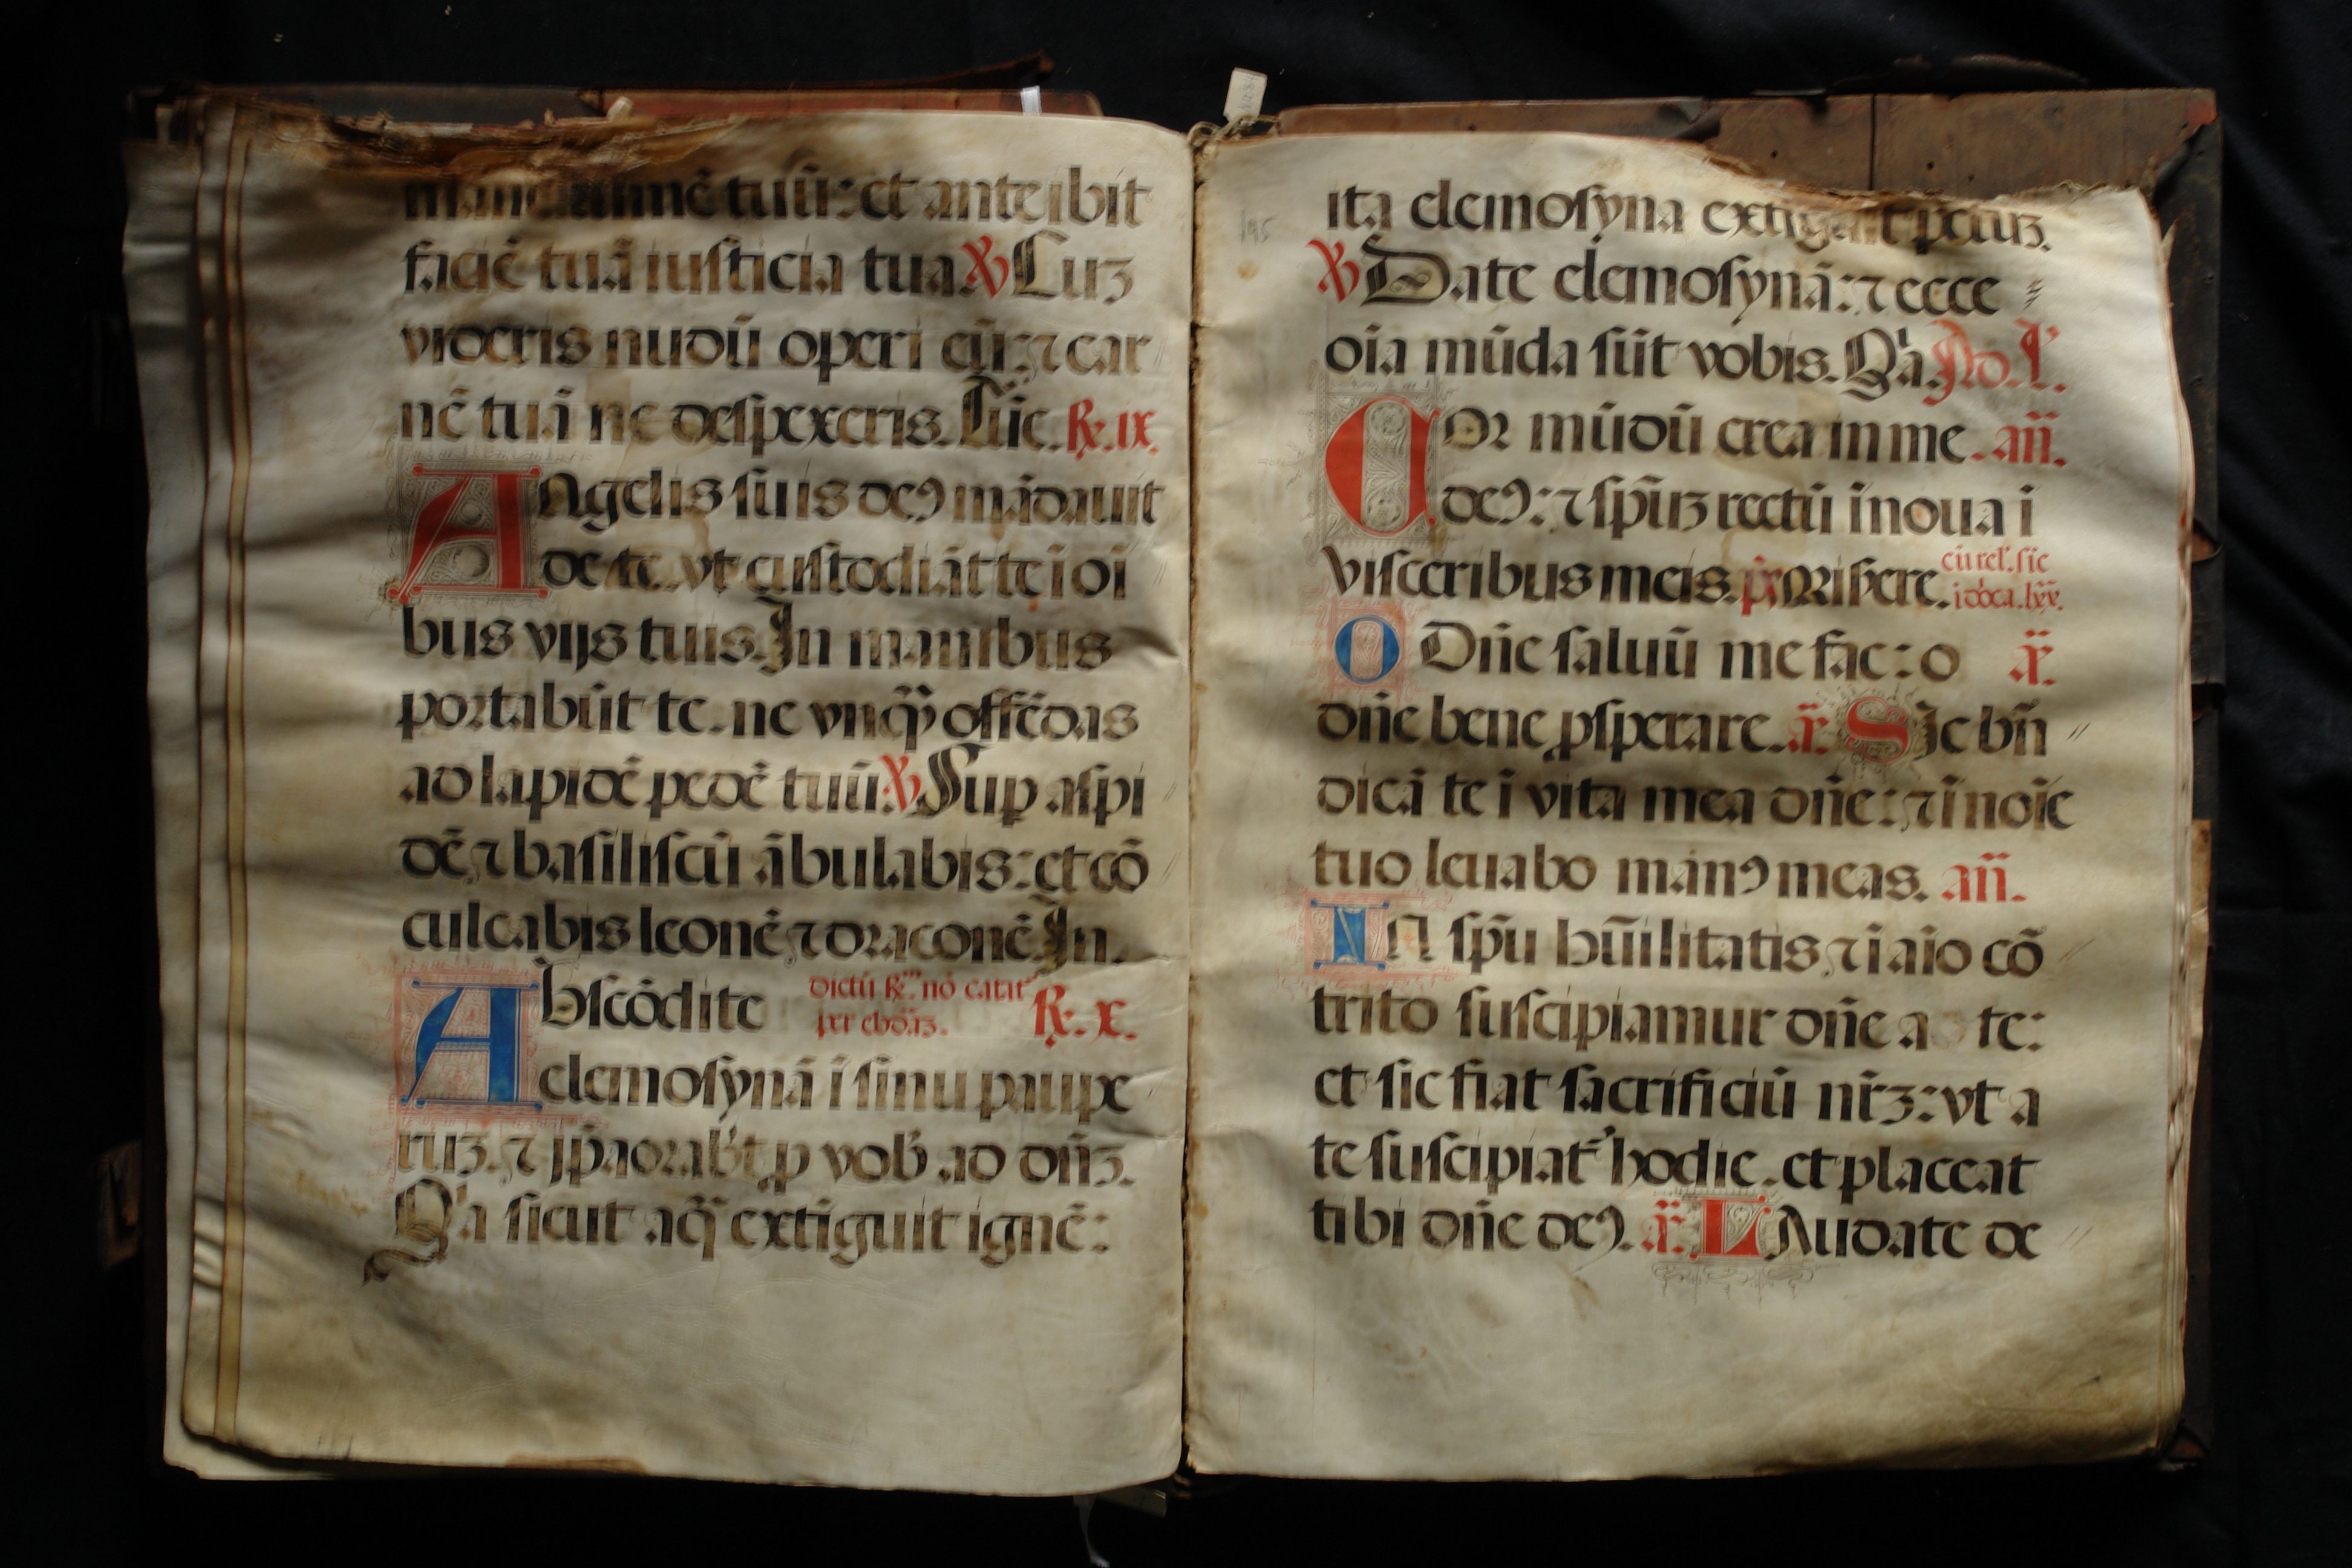 lumē tuū: et anteibit
faciē tuā iusticia tua ℣ Cuʒ
videris nudū operi eū: ⁊ car
nē tuā ne despexeris. Tūc. ℟. ix.
Angelis suis deꝰ mādauit
de te. vt custodiāt te ī oī
bus vijs tuis. In manibus
portabūt te. ne vnq̄ offēdas
ad lapidē pedē tuū. ℣ Suꝑ aspi
dē ⁊ basiliscū ābulabis: et cō
culcabis leonē ⁊ draconē. In.
Abscōdite dictū ℟. nō catat᷑ ℟. x.
elemosynā ī sinu paupe
ruʒ. ⁊ ip̄a orabit ꝓ vob᷒ ad dn̄ʒ.
Qͥa sicut aq̄ extiguit ignē:
195
ita elemosyna extiguit pctūʒ.
℣ Date elemosynā: ⁊ ecce
oīa mūda sūt vobis. Qͥa. Ad. l'.
Cor mūdū crea in me. an̄.
deꝰ: ⁊ sp̄uʒ rectū īnoua ī
visceribus meis. p̄s Misere. cū rel'. sic
O Dn̄e saluū me fac: o a᷒.
dn̄e bene ꝓsperare. a᷒. Sic bn̄
dicā te ī vita mea dn̄e: ⁊ ī noīe
tuo leuabo manꝰ meas. an̄.
In sp̄u hūilitatis ⁊ ī aīo cō
trito suscipiamur dn̄e a te:
et sic fiat sacrificiū nr̄ʒ: vt a
te suscipiat᷑ hodie. et placeat
tibi dn̄e deꝰ. a᷒. Laudate de